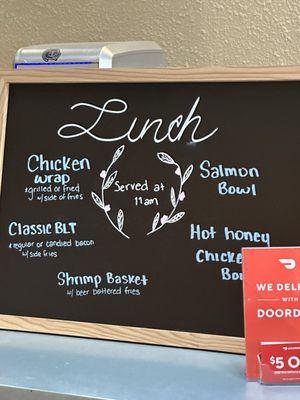 Lunch
Served at
11am
Chicken
wrap
*grilled or fried
w/ side of fries
Classic BLT
*regular or candied bacon
w/ side fries
Shrimp Basket
w/ beer battered fries
Salmon
Bowl
Hot honey
Chicke
Bo
WE DELI
WITH
DOORD
$5 O